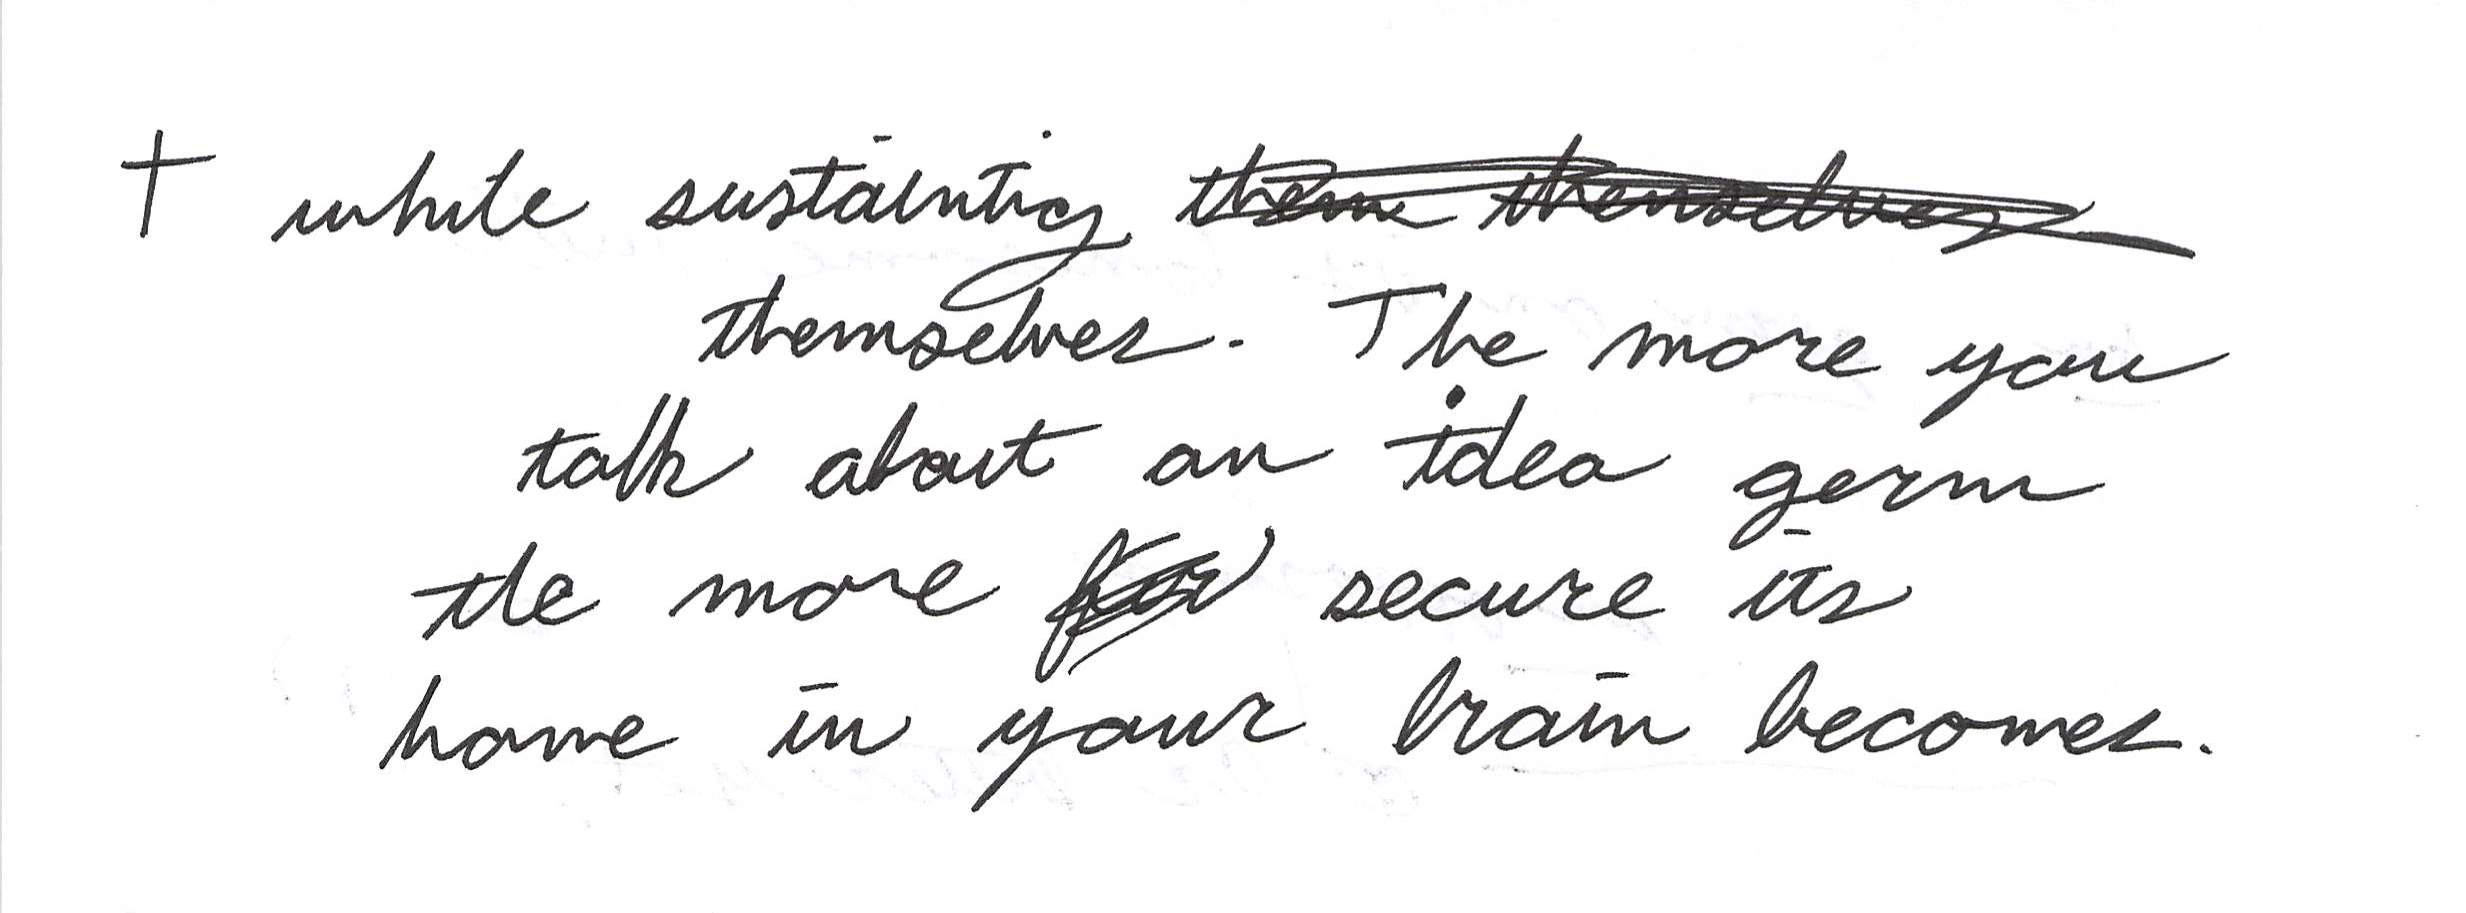 † while sustaining them themselves
themselves. The more you
talk about an idea germ
the more secure its
home in your brain becomes.